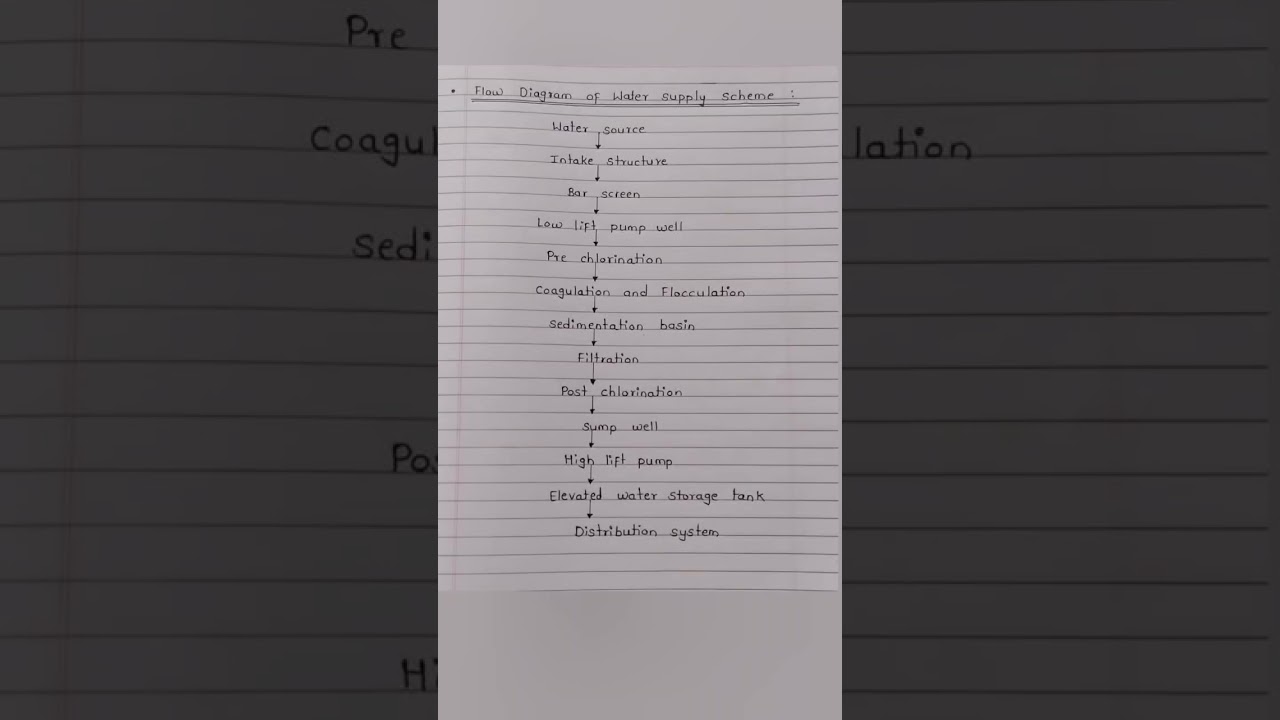 • Flow Diagram of Water supply scheme :
Water source
Intake structure
Bar screen
Low lift pump well
Pre chlorination
Coagulation and Flocculation
Sedimentation basin
Filtration
Post chlorination
Sump well
High lift pump
Elevated water storage tank
Distribution system